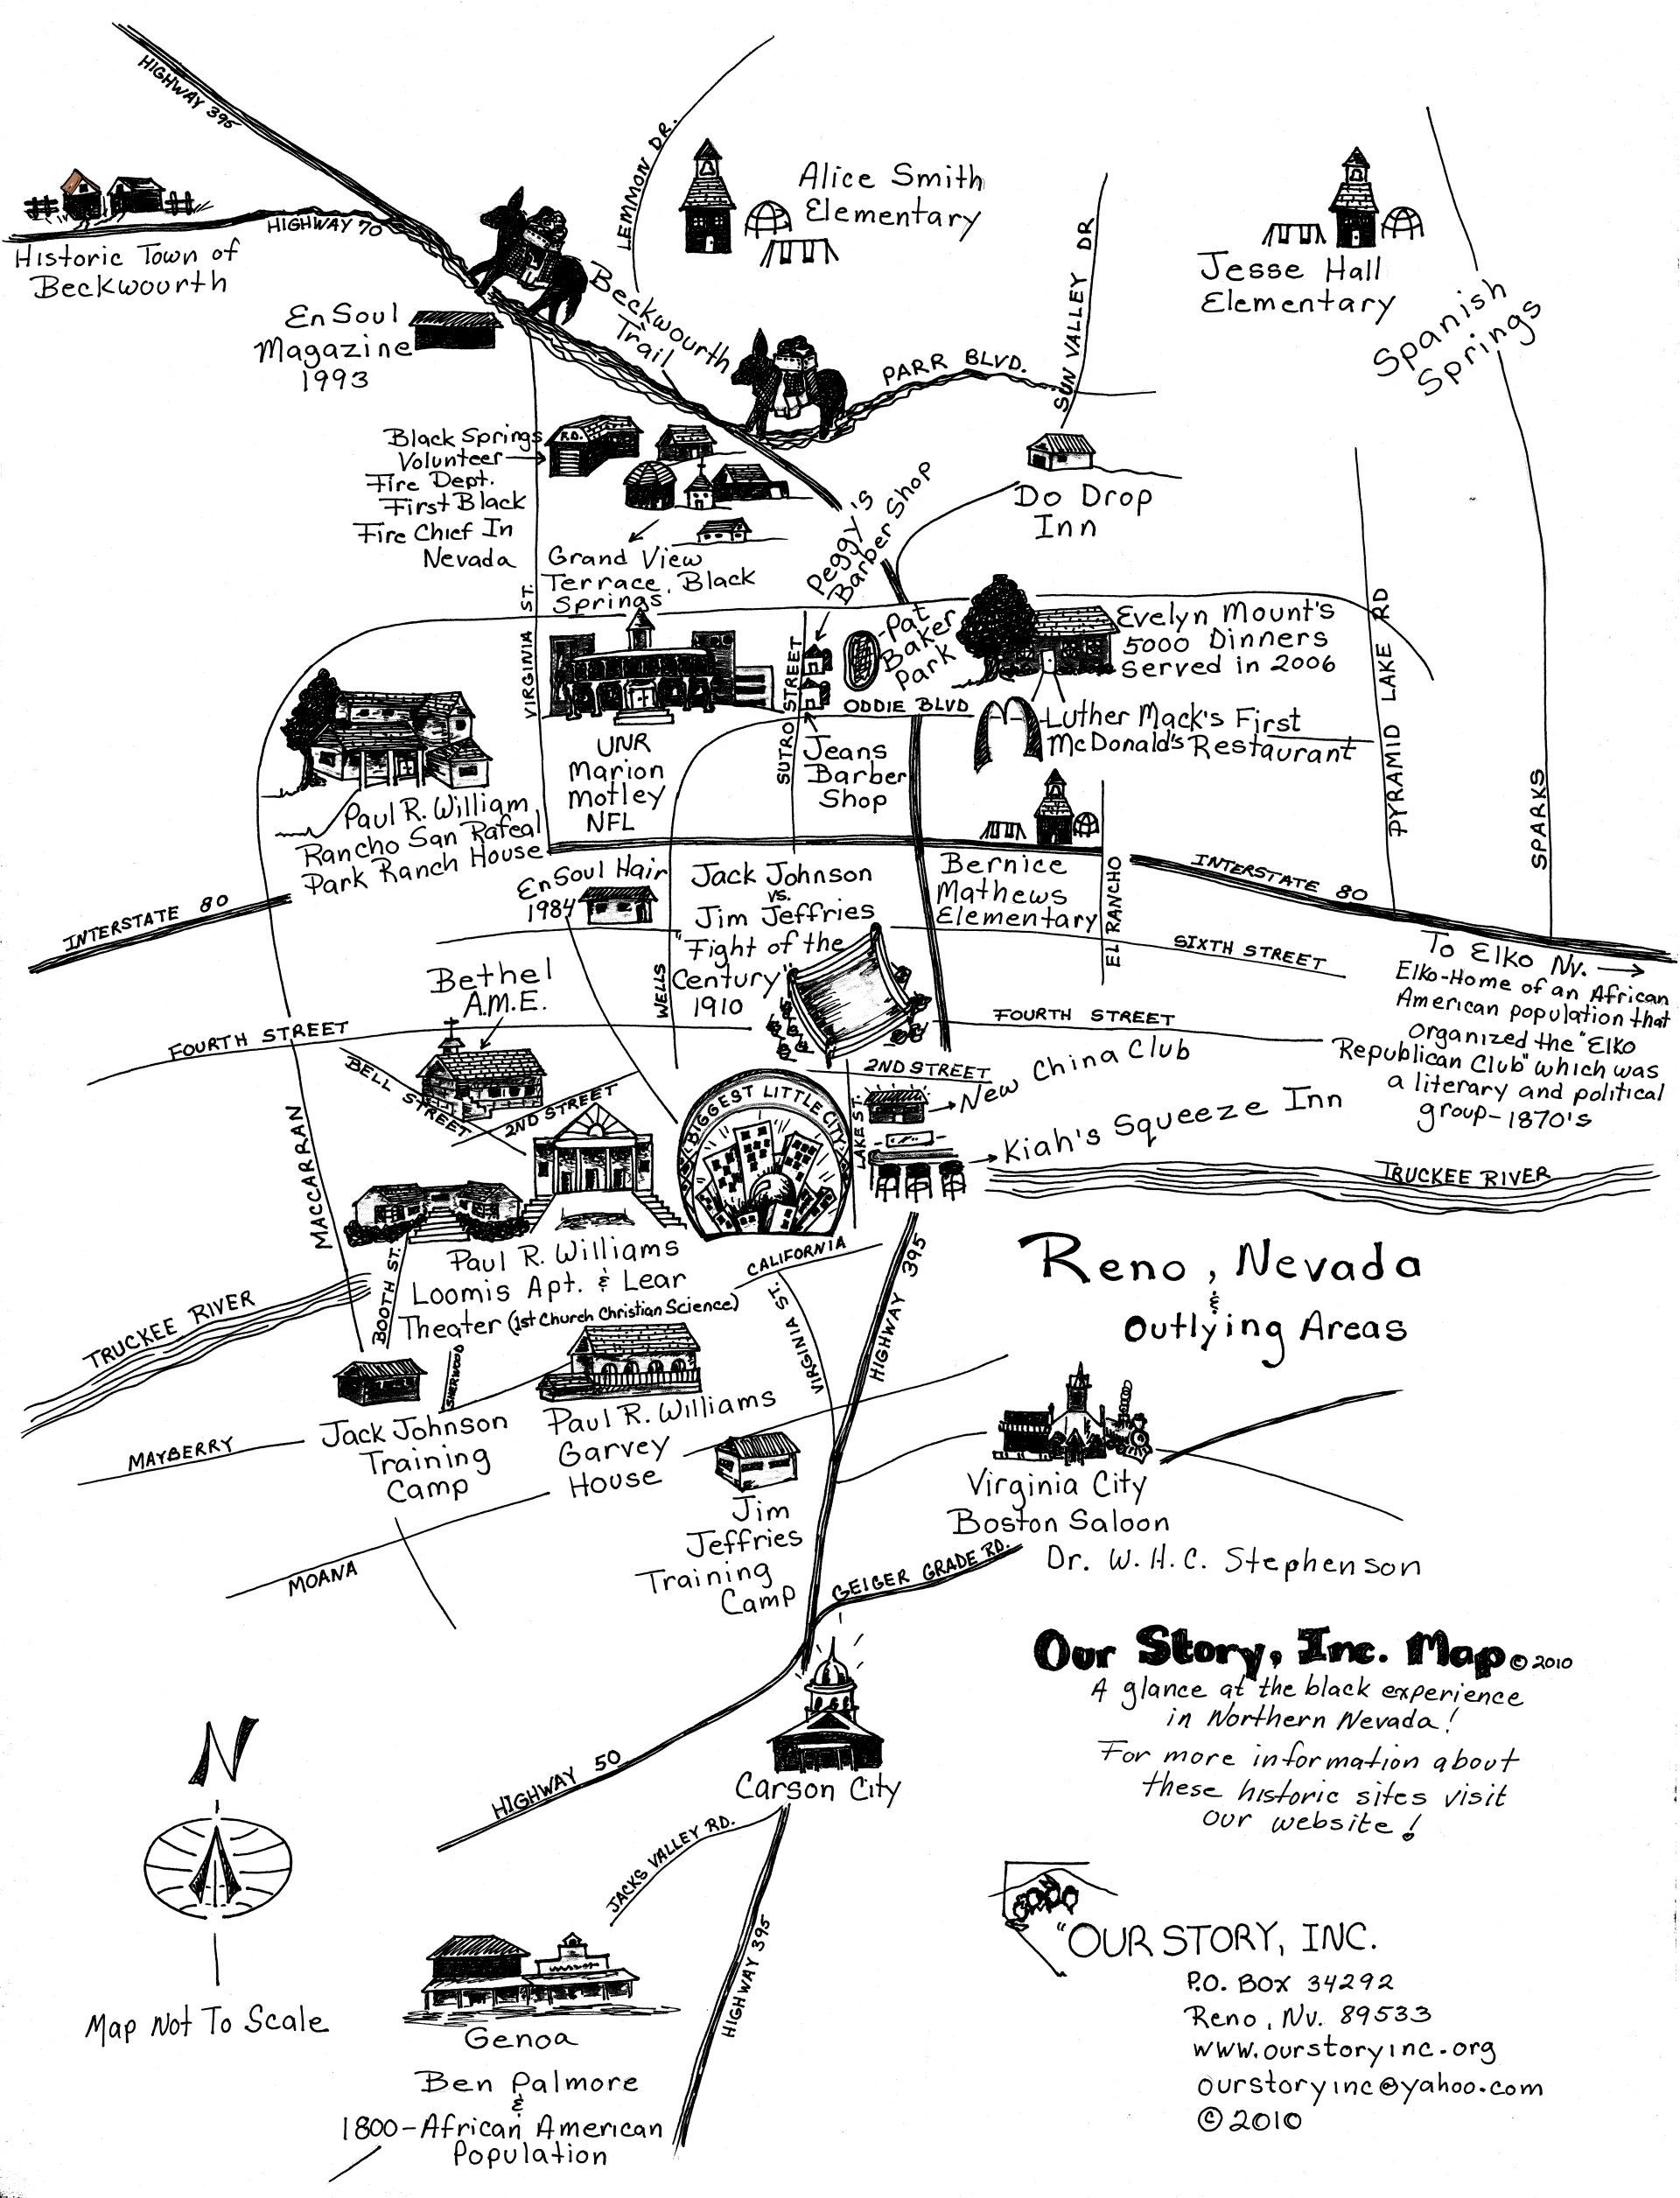 HIGHWAY 395
LEMMON DR.
Alice Smith
Elementary
SUN VALLEY DR
Jesse Hall
Elementary
HIGHWAY 70
Historic Town of
Beckwourth
EnSoul
Magazine
1993
Beckwourth
Trail
PARR BLVD.
Spanish
Springs
Black Springs
Volunteer
Fire Dept.
First Black
Fire Chief In
Nevada
R.D.
Grand View
Terrace, Black
Springs
Peggy's
Barber Shop
Do Drop
Inn
VIRGINIA ST.
SUTRO STREET
Pat
Baker
Park
Evelyn Mount's
5000 Dinners
Served in 2006
PYRAMID LAKE RD
ODDIE BLVD
Luther Mack's First
McDonald's Restaurant
UNR
Marion
Motley
NFL
Jeans
Barber
Shop
SPARKS
Paul R. William
Rancho San Rafeal
Park Ranch House
INTERSTATE 80
EnSoul Hair
1984
Jack Johnson
vs.
Jim Jeffries
"Fight of the
Century"
1910
Bernice
Mathews
Elementary
EL RANCHO
INTERSTATE 80
SIXTH STREET
To Elko Nv.
Elko-Home of an African
American population that
organized the "Elko
Republican Club" which was
a literary and political
group-1870's
Bethel
A.M.E.
WELLS
FOURTH STREET
FOURTH STREET
BELL STREET
2ND STREET
2ND STREET
New China Club
BIGGEST LITTLE CITY
LAKE ST.
Kiah's Squeeze Inn
TRUCKEE RIVER
MACCARRAN
Paul R. Williams
Loomis Apt. & Lear
Theater (1st Church Christian Science)
CALIFORNIA
HIGHWAY 395
Reno, Nevada
&
Outlying Areas
TRUCKEE RIVER
BOOTH ST.
SHERWOOD
VIRGINIA ST.
Jack Johnson
Training
Camp
Paul R. Williams
Garvey
House
MAYBERRY
MOANA
Jim
Jeffries
Training
Camp
Virginia City
Boston Saloon
Dr. W. H. C. Stephenson
GEIGER GRADE RD.
Our Story, Inc. Map © 2010
A glance at the black experience
in Northern Nevada!
For more information about
these historic sites visit
our website!
N
HIGHWAY 50
Carson City
JACKS VALLEY RD.
HIGHWAY 395
Map Not To Scale
Genoa
Ben Palmore
&
1800-African American
Population
"OUR STORY, INC.
P.O. BOX 34292
Reno, Nv. 89533
www.ourstoryinc.org
ourstoryinc@yahoo.com
© 2010